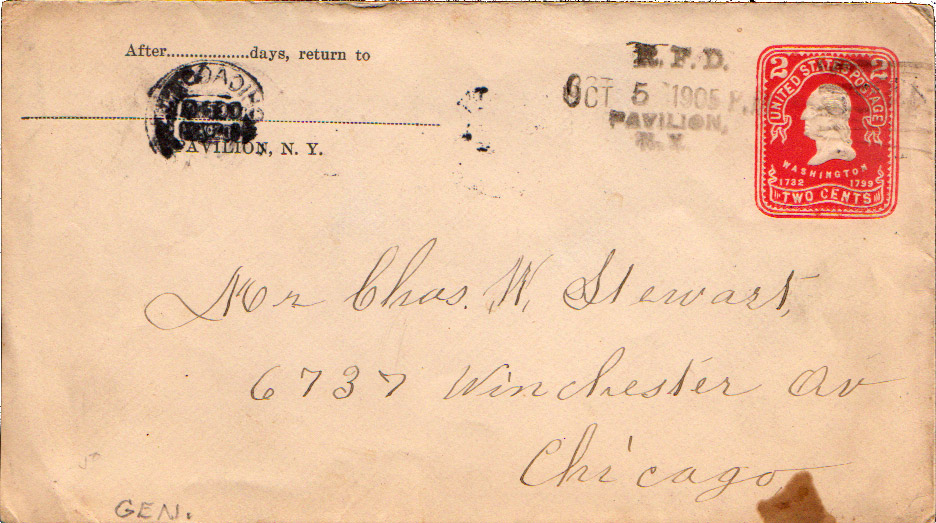 After................days, return to
PAVILION, N. Y.
R. F. D.
OCT 5 1905
PAVILION,
N. Y.
2 2
UNITED STATES POSTAGE
WASHINGTON
1732 1799
TWO CENTS
Mr Chas. W. Stewart,
6737 Winchester Av
Chicago
GEN.